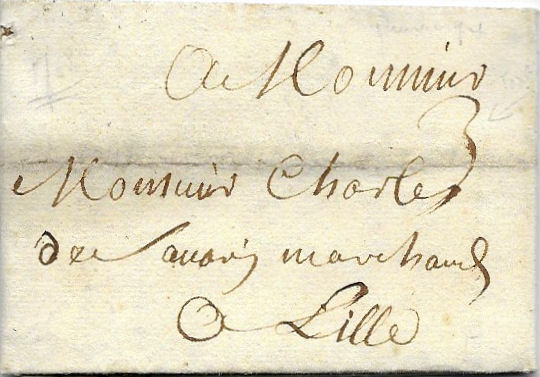 A Monsieur
3
Monsieur Charles
de marchand
A Lille